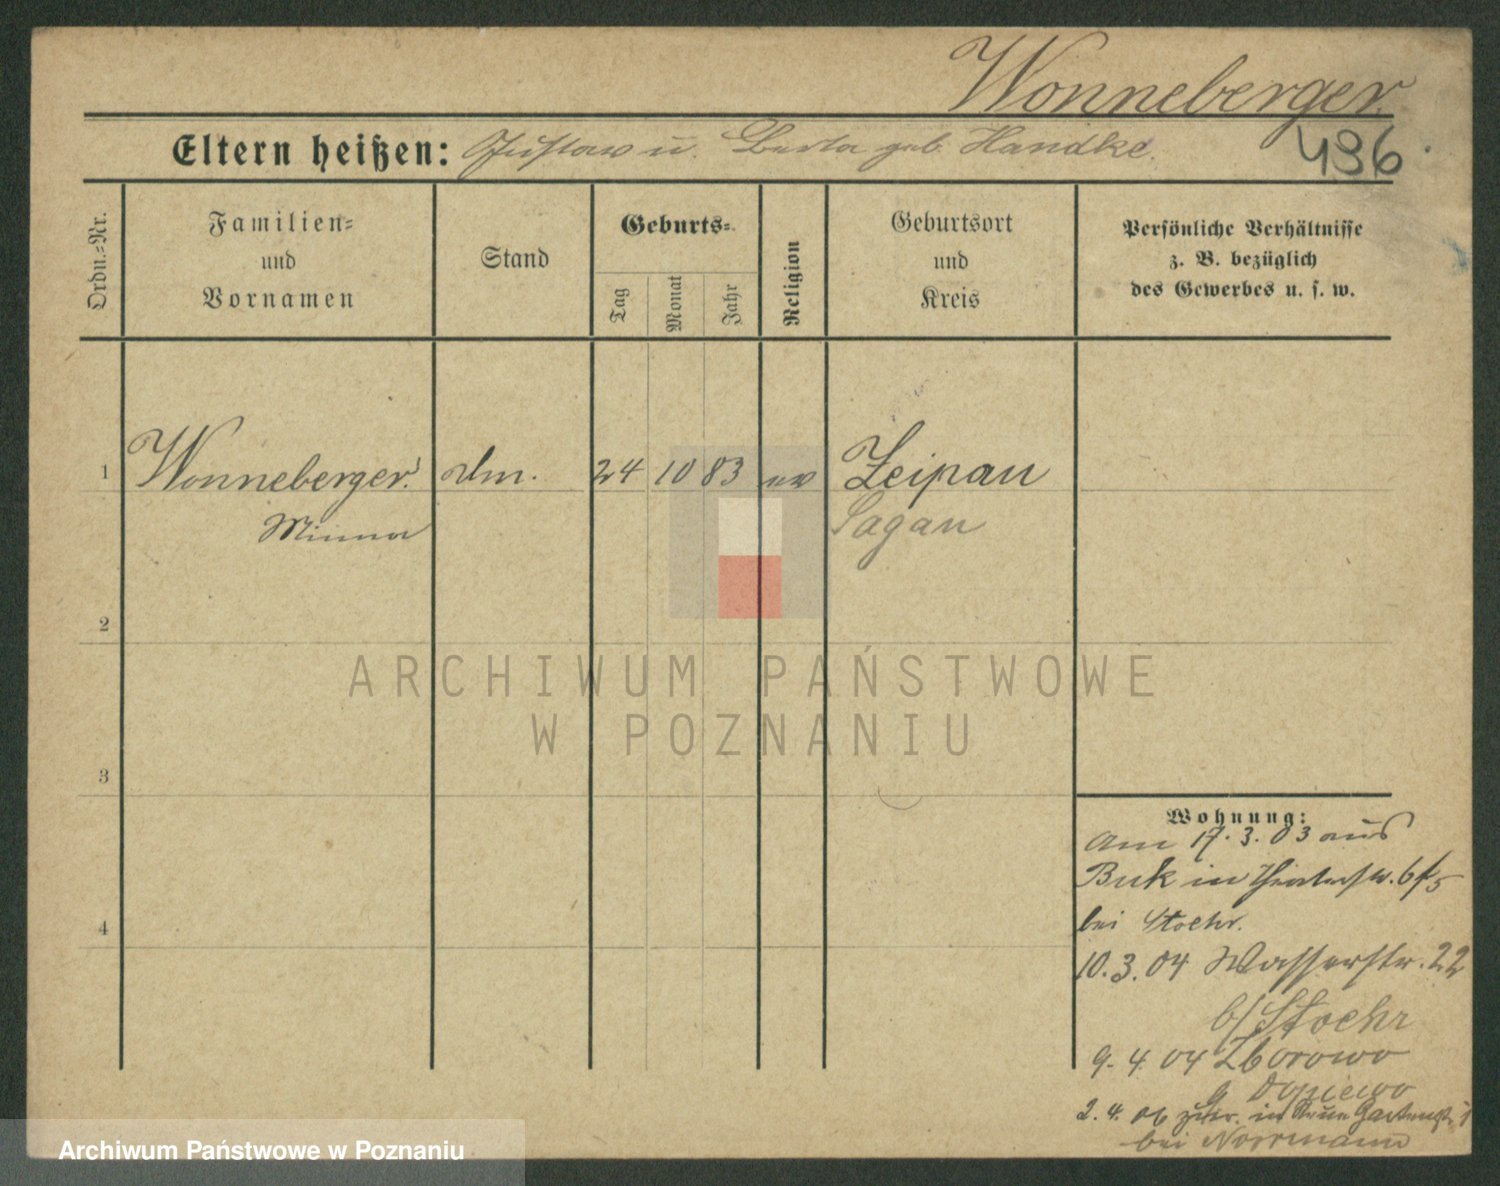 Wonneberger.
Eltern heißen: Gustav u. Berta geb. Handke.
496
Ordn.-Nr.
Familien-
und
Vornamen
Stand
Geburts-
Tag
Monat
Jahr
Religion
Geburtsort
und
Kreis
Persönliche Verhältnisse
z. B. bezüglich
des Gewerbes u. s. w.
1 Wonneberger 24 10 83 ev Zeipau
Minna Sagan
2
ARCHIWUM PAŃSTWOWE
W POZNANIU
3
Wohnung:
Am 17.3.03 aus
Buk in
4
bei Stoehr.
10.3.04 Wasserstr. 22
b/ Stoehr
9. 4. 04 Zborowo
Dopiewo
2. 4. 06 in Gartenstr. 1
bei Norrmann
Archiwum Państwowe w Poznaniu